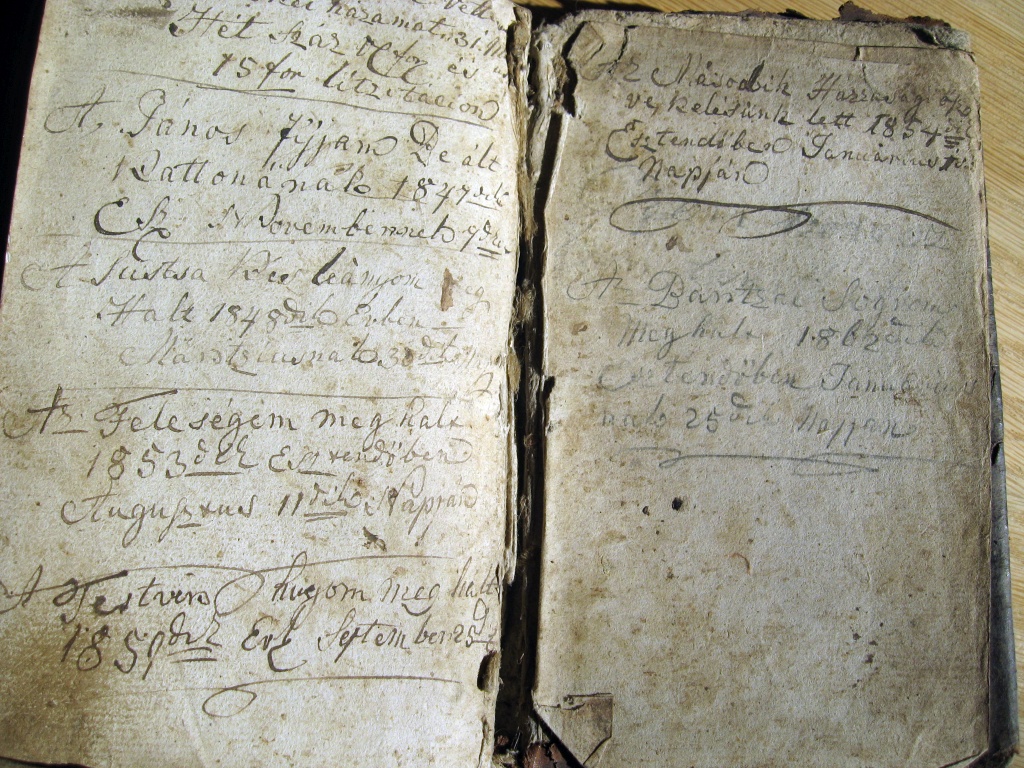 Hét szaz
15 for litzitatcion
A János fijjam Be ált
Kattonának 1847dik
Esz Novembernek 9dik
A Sustsa kis leányom meg
Halt 1848dik Évben
Martziusnak 30dik
Az Feleségem meg halt
1853dik Esztendőben
Augusztus 11dik Napján
A Testvér hugom meg halt
1859dik Évb September 25d
Az Második Házzaság
kelésünk lett 1854dik
Esztendőben Januárius
Napján
A Bartzai Sógrom
meg halt 1862dik
Esztendőben Januárius
nak 25dik Napján